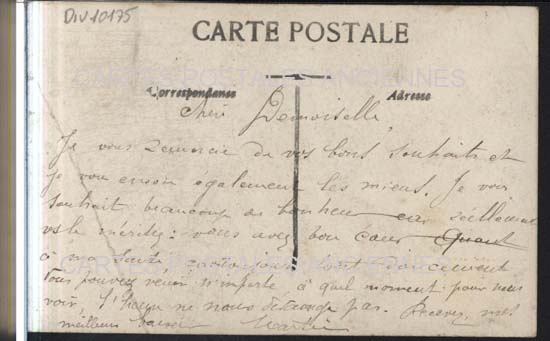 DIV10175
CARTE POSTALE
CARTES POSTALES ANCIENNES
Correspondance
Adresse
Chère Demoiselle
Je vous remercie de vos bons souhaits et
je vous envoie également les miens. Je vous
souhait beaucoup de bonheur car réellement
vs le méritez: vous avez bon cœur
à ma santé
Vous pouvez venir n'importe à quel moment pour nous
voir, l'heure ne nous dérange pas. Recevez mes
meilleurs baisers